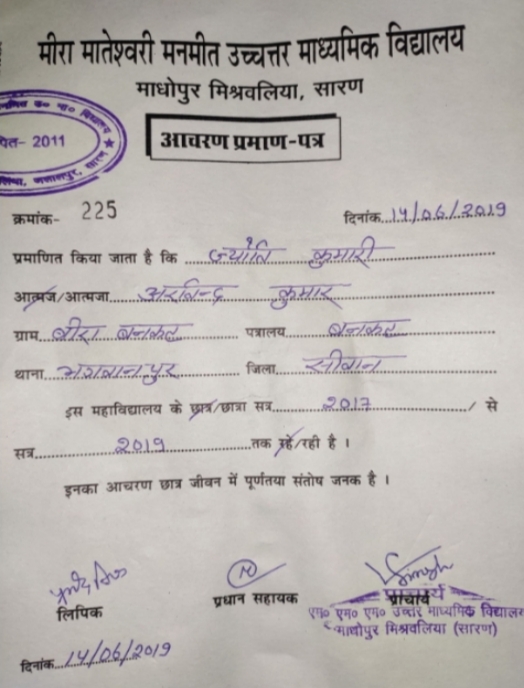 मीरा मातेश्वरी मनमीत उच्चत्तर माध्यमिक विद्यालय
माधोपुर मिश्रवलिया, सारण
पित- 2011
आवरण प्रमाण-पत्र
क्रमांक- 225 दिनांक 14/06/2019
प्रमाणित किया जाता है कि ज्योति कुमारी
आत्मज/आत्मजा अरविन्द कुमार
ग्राम बीरा बनकट पत्रालय बनकट
थाना भगवानपुर जिला सीवान
इस महाविद्यालय के छात्र/छात्रा सत्र 2017 / से
सत्र 2019 तक रहें/रही है ।
इनका आचरण छात्र जीवन में पूर्णतया संतोष जनक है ।
लिपिक प्रधान सहायक प्राचार्य
एम० एम० एम० उच्चतर माध्यमिक विद्यालय
माधोपुर मिश्रवलिया (सारण)
दिनांक 14/06/2019